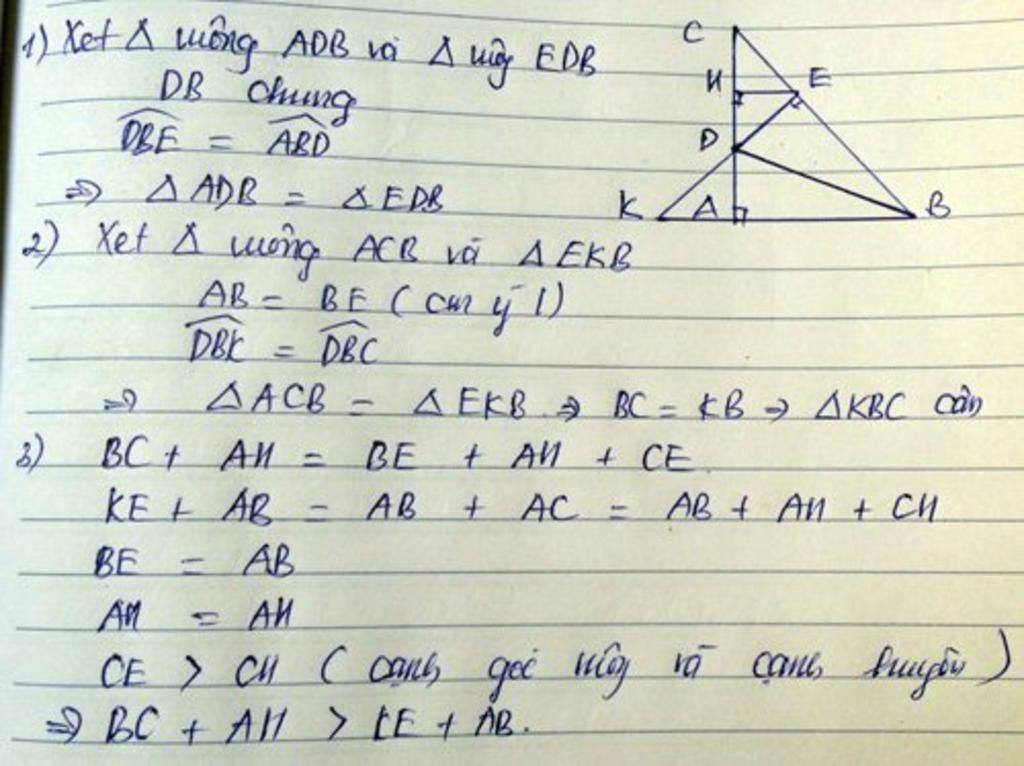 1) Xet Δ vuông ADB và Δ vuông EDB
DB chung
DBE = ABD
⇒ Δ ADB = Δ EDB
2) Xet Δ vuông ACB và Δ EKB
AB = BE (cm ý 1)
DBK = DBC
⇒ Δ ACB = Δ EKB ⇒ BC = KB ⇒ Δ KBC cân
3) BC + AH = BE + AH + CE
KE + AB = AB + AC = AB + AH + CH
BE = AB
AH = AH
CE > CH (cạnh góc vuông và cạnh huyền)
⇒ BC + AH > KE + AB.
C
H E
D
K A B